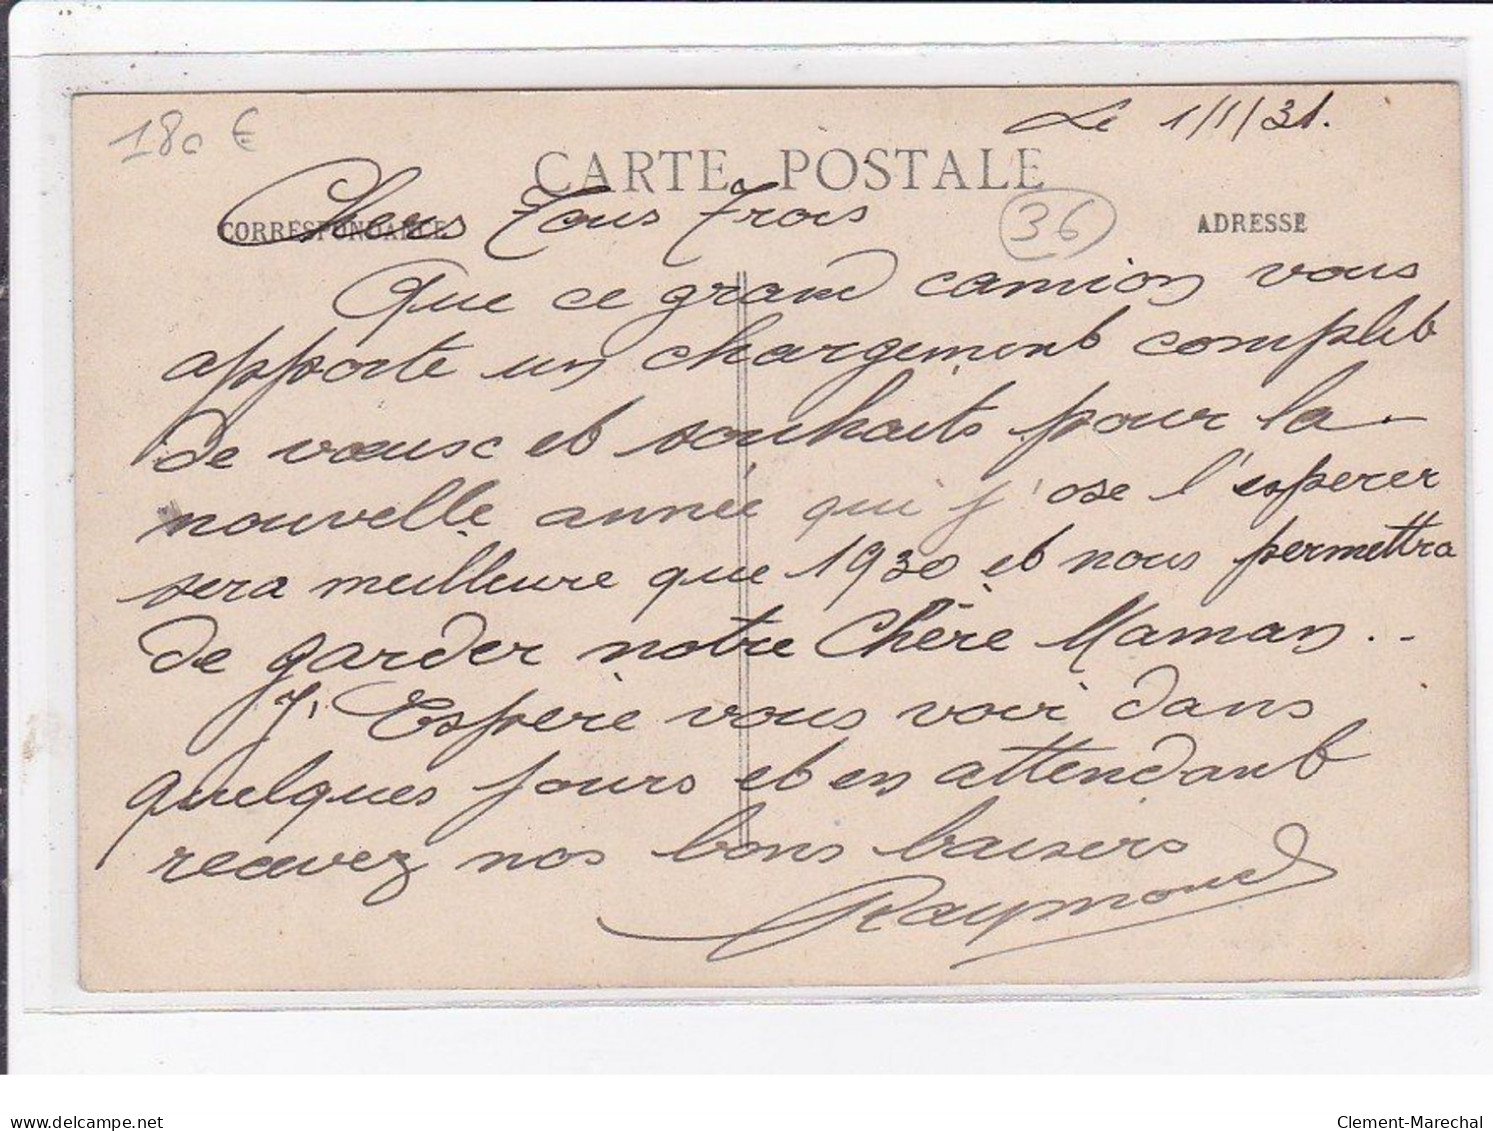 180 €
Le 1/1/31.
CARTE POSTALE
CORRESPONDANCE
36
ADRESSE
Chers Tous Trois
Que ce grand camion vous
apporte un chargement complet
de voeusc et souhaits pour la
nouvelle année qui j'ose l'esperer
sera meilleure que 1930 et nous permettra
de garder notre Chère Maman..
J'Espère vous voir dans
quelques jours et en attendant
recevez nos bons baisers
Raymond
delcampe.net
Clement-Marechal